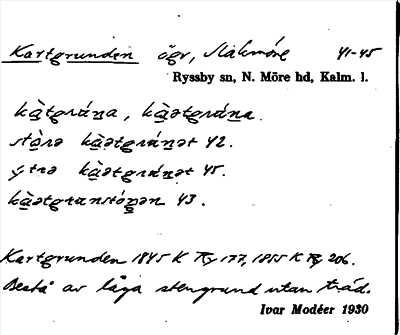 Kartgrunden ögr, Slakmöre 41-45
Ryssby sn, N. Möre hd, Kalm. l.
kàtgrúna, kàǝtgrúna.
stòrǝ kàǝtgrúnǝt 42.
ytrǝ kàǝtgrúnǝt 45.
kàǝtgrunstópǝn 43.
Kartgrunden 1845 K Ry 177, 1855 K Ry 206.
Bestå av låga stengrund utan träd.
Ivar Modéer 1930